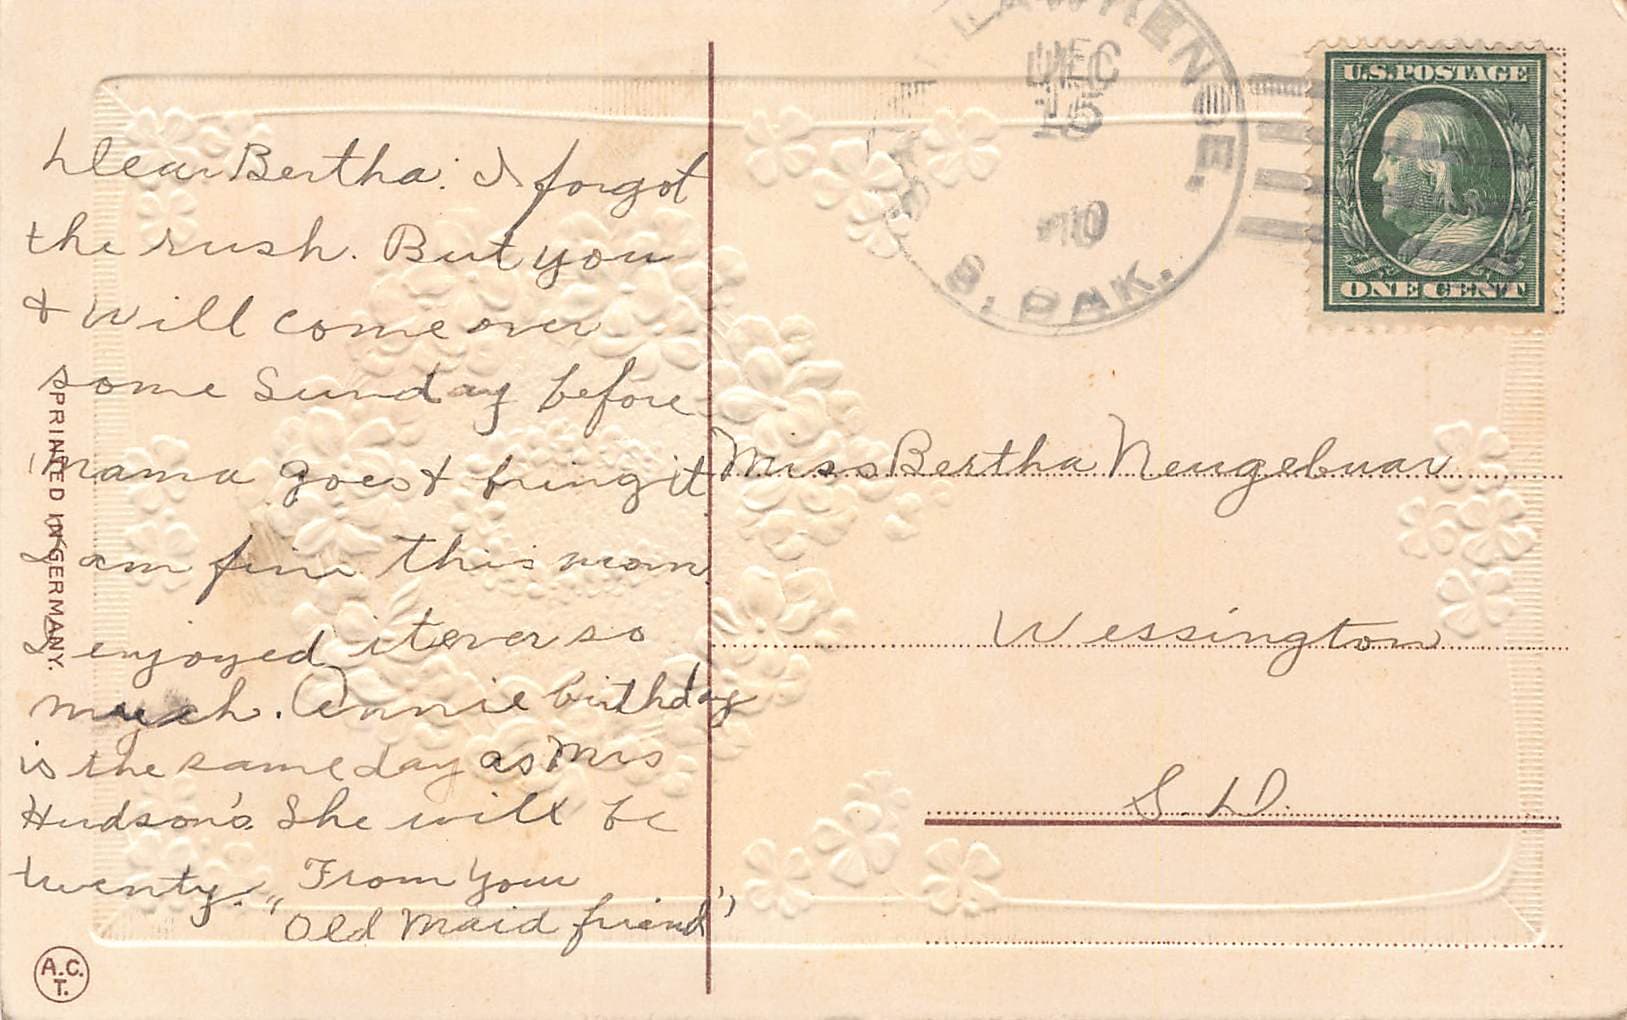 Dear Bertha: I forgot
the rush. But you
& Will come over
some Sunday before
mama goes & bring it
I am fine this morn
I enjoyed it ever so
much. Annie birthday
is the same day as Mrs
Hudson's. She will be
twenty. From your
"Old Maid friend"
PRINTED IN GERMANY.
A.C.
T.
LAWRENCE.
DEC
15
10
S. DAK.
U.S. POSTAGE
ONE CENT
Miss Bertha Neugebuar
Wessington
S. D.